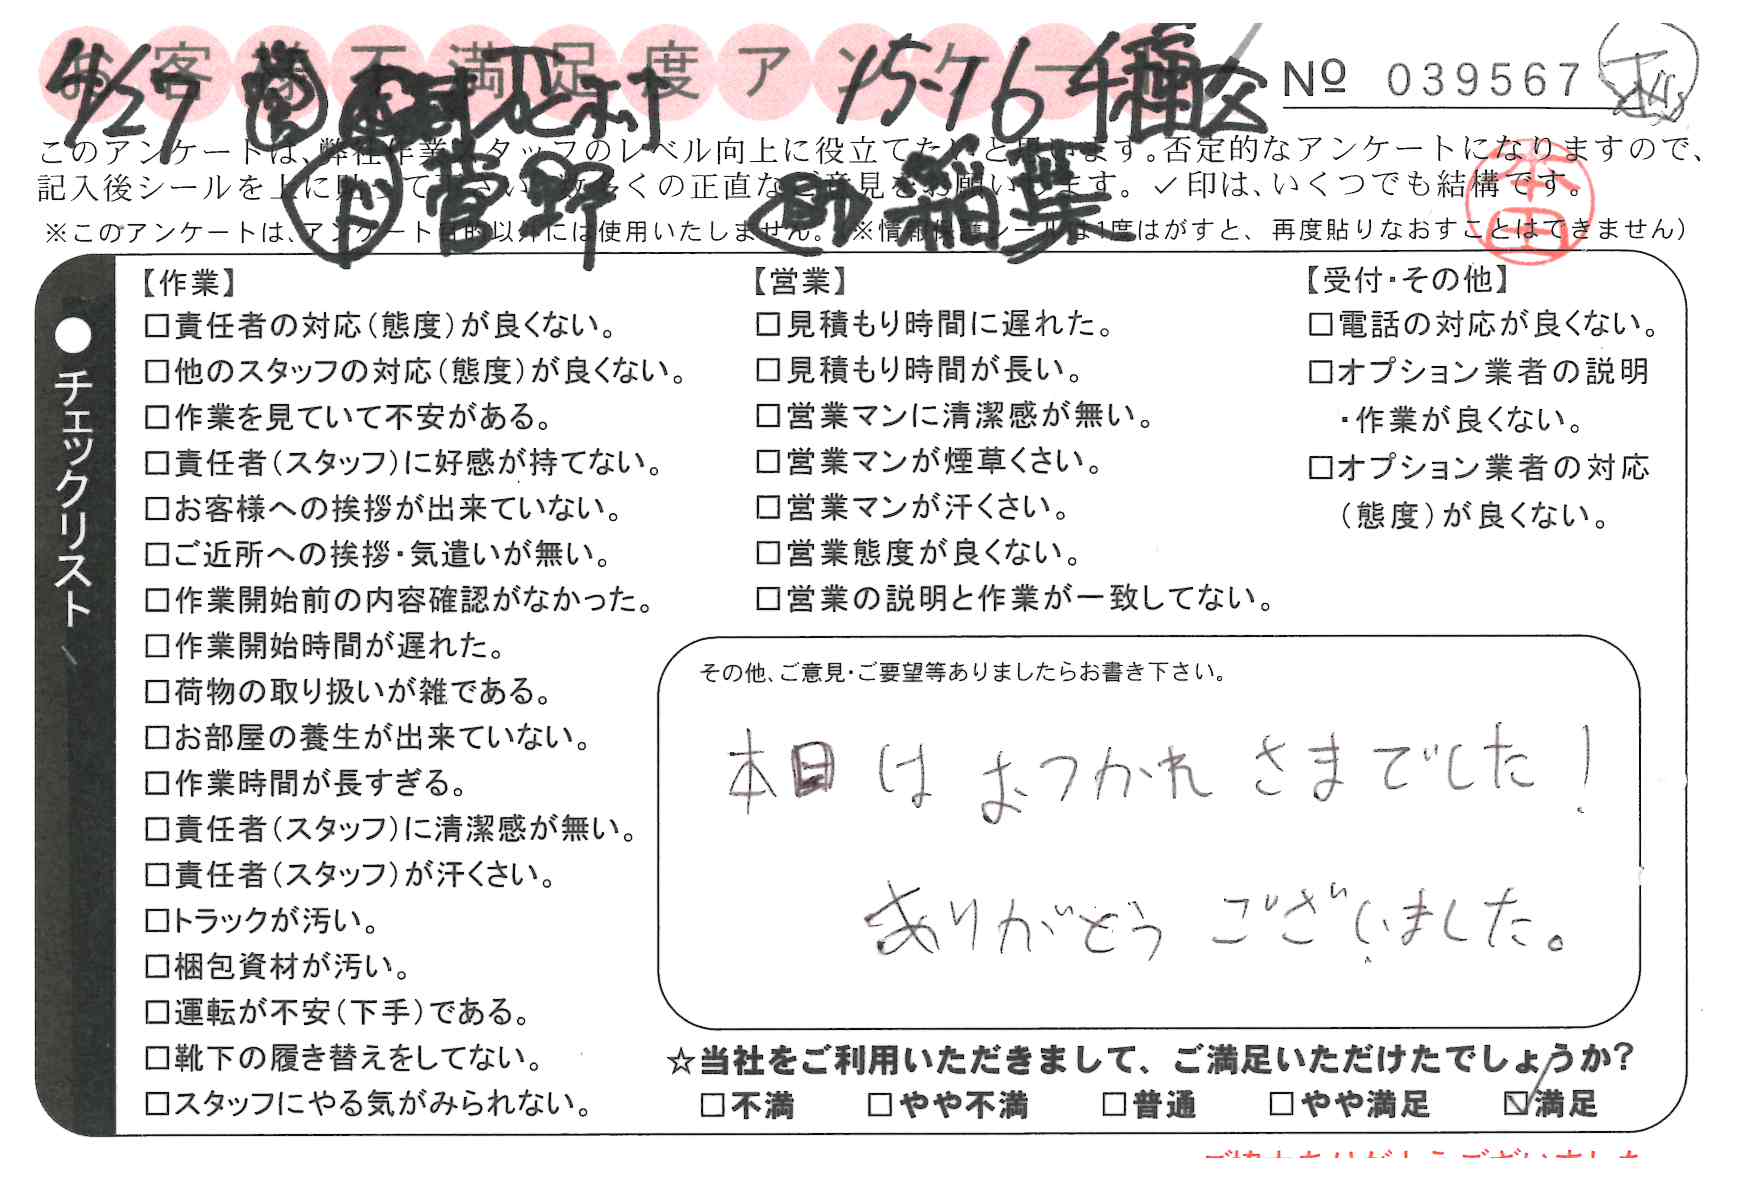 お客様不満足度アンケート
4/27 営 下村 15-16 千種区 № 039567
このアンケートは、弊社作業スタッフのレベル向上に役立てたいと思います。否定的なアンケートになりますので、
記入後シールを上に貼って下さい。数多くの正直なご意見をお願いします。✓印は、いくつでも結構です。
菅野 即 稲葉 本田
※このアンケートは、アンケート目的以外には使用いたしません。(※情報保護シールは1度はがすと、再度貼りなおすことはできません)
●チェックリスト
【作業】
□責任者の対応(態度)が良くない。
□他のスタッフの対応(態度)が良くない。
□作業を見ていて不安がある。
□責任者(スタッフ)に好感が持てない。
□お客様への挨拶が出来ていない。
□ご近所への挨拶・気遣いが無い。
□作業開始前の内容確認がなかった。
□作業開始時間が遅れた。
□荷物の取り扱いが雑である。
□お部屋の養生が出来ていない。
□作業時間が長すぎる。
□責任者(スタッフ)に清潔感が無い。
□責任者(スタッフ)が汗くさい。
□トラックが汚い。
□梱包資材が汚い。
□運転が不安(下手)である。
□靴下の履き替えをしてない。
□スタッフにやる気がみられない。
【営業】
□見積もり時間に遅れた。
□見積もり時間が長い。
□営業マンに清潔感が無い。
□営業マンが煙草くさい。
□営業マンが汗くさい。
□営業態度が良くない。
□営業の説明と作業が一致してない。
【受付・その他】
□電話の対応が良くない。
□オプション業者の説明
・作業が良くない。
□オプション業者の対応
(態度)が良くない。
その他、ご意見・ご要望等ありましたらお書き下さい。
本日はおつかれさまでした！
ありがとうございました。
☆当社をご利用いただきまして、ご満足いただけたでしょうか？
□不満 □やや不満 □普通 □やや満足 ☑満足
ご協力ありがとうございました